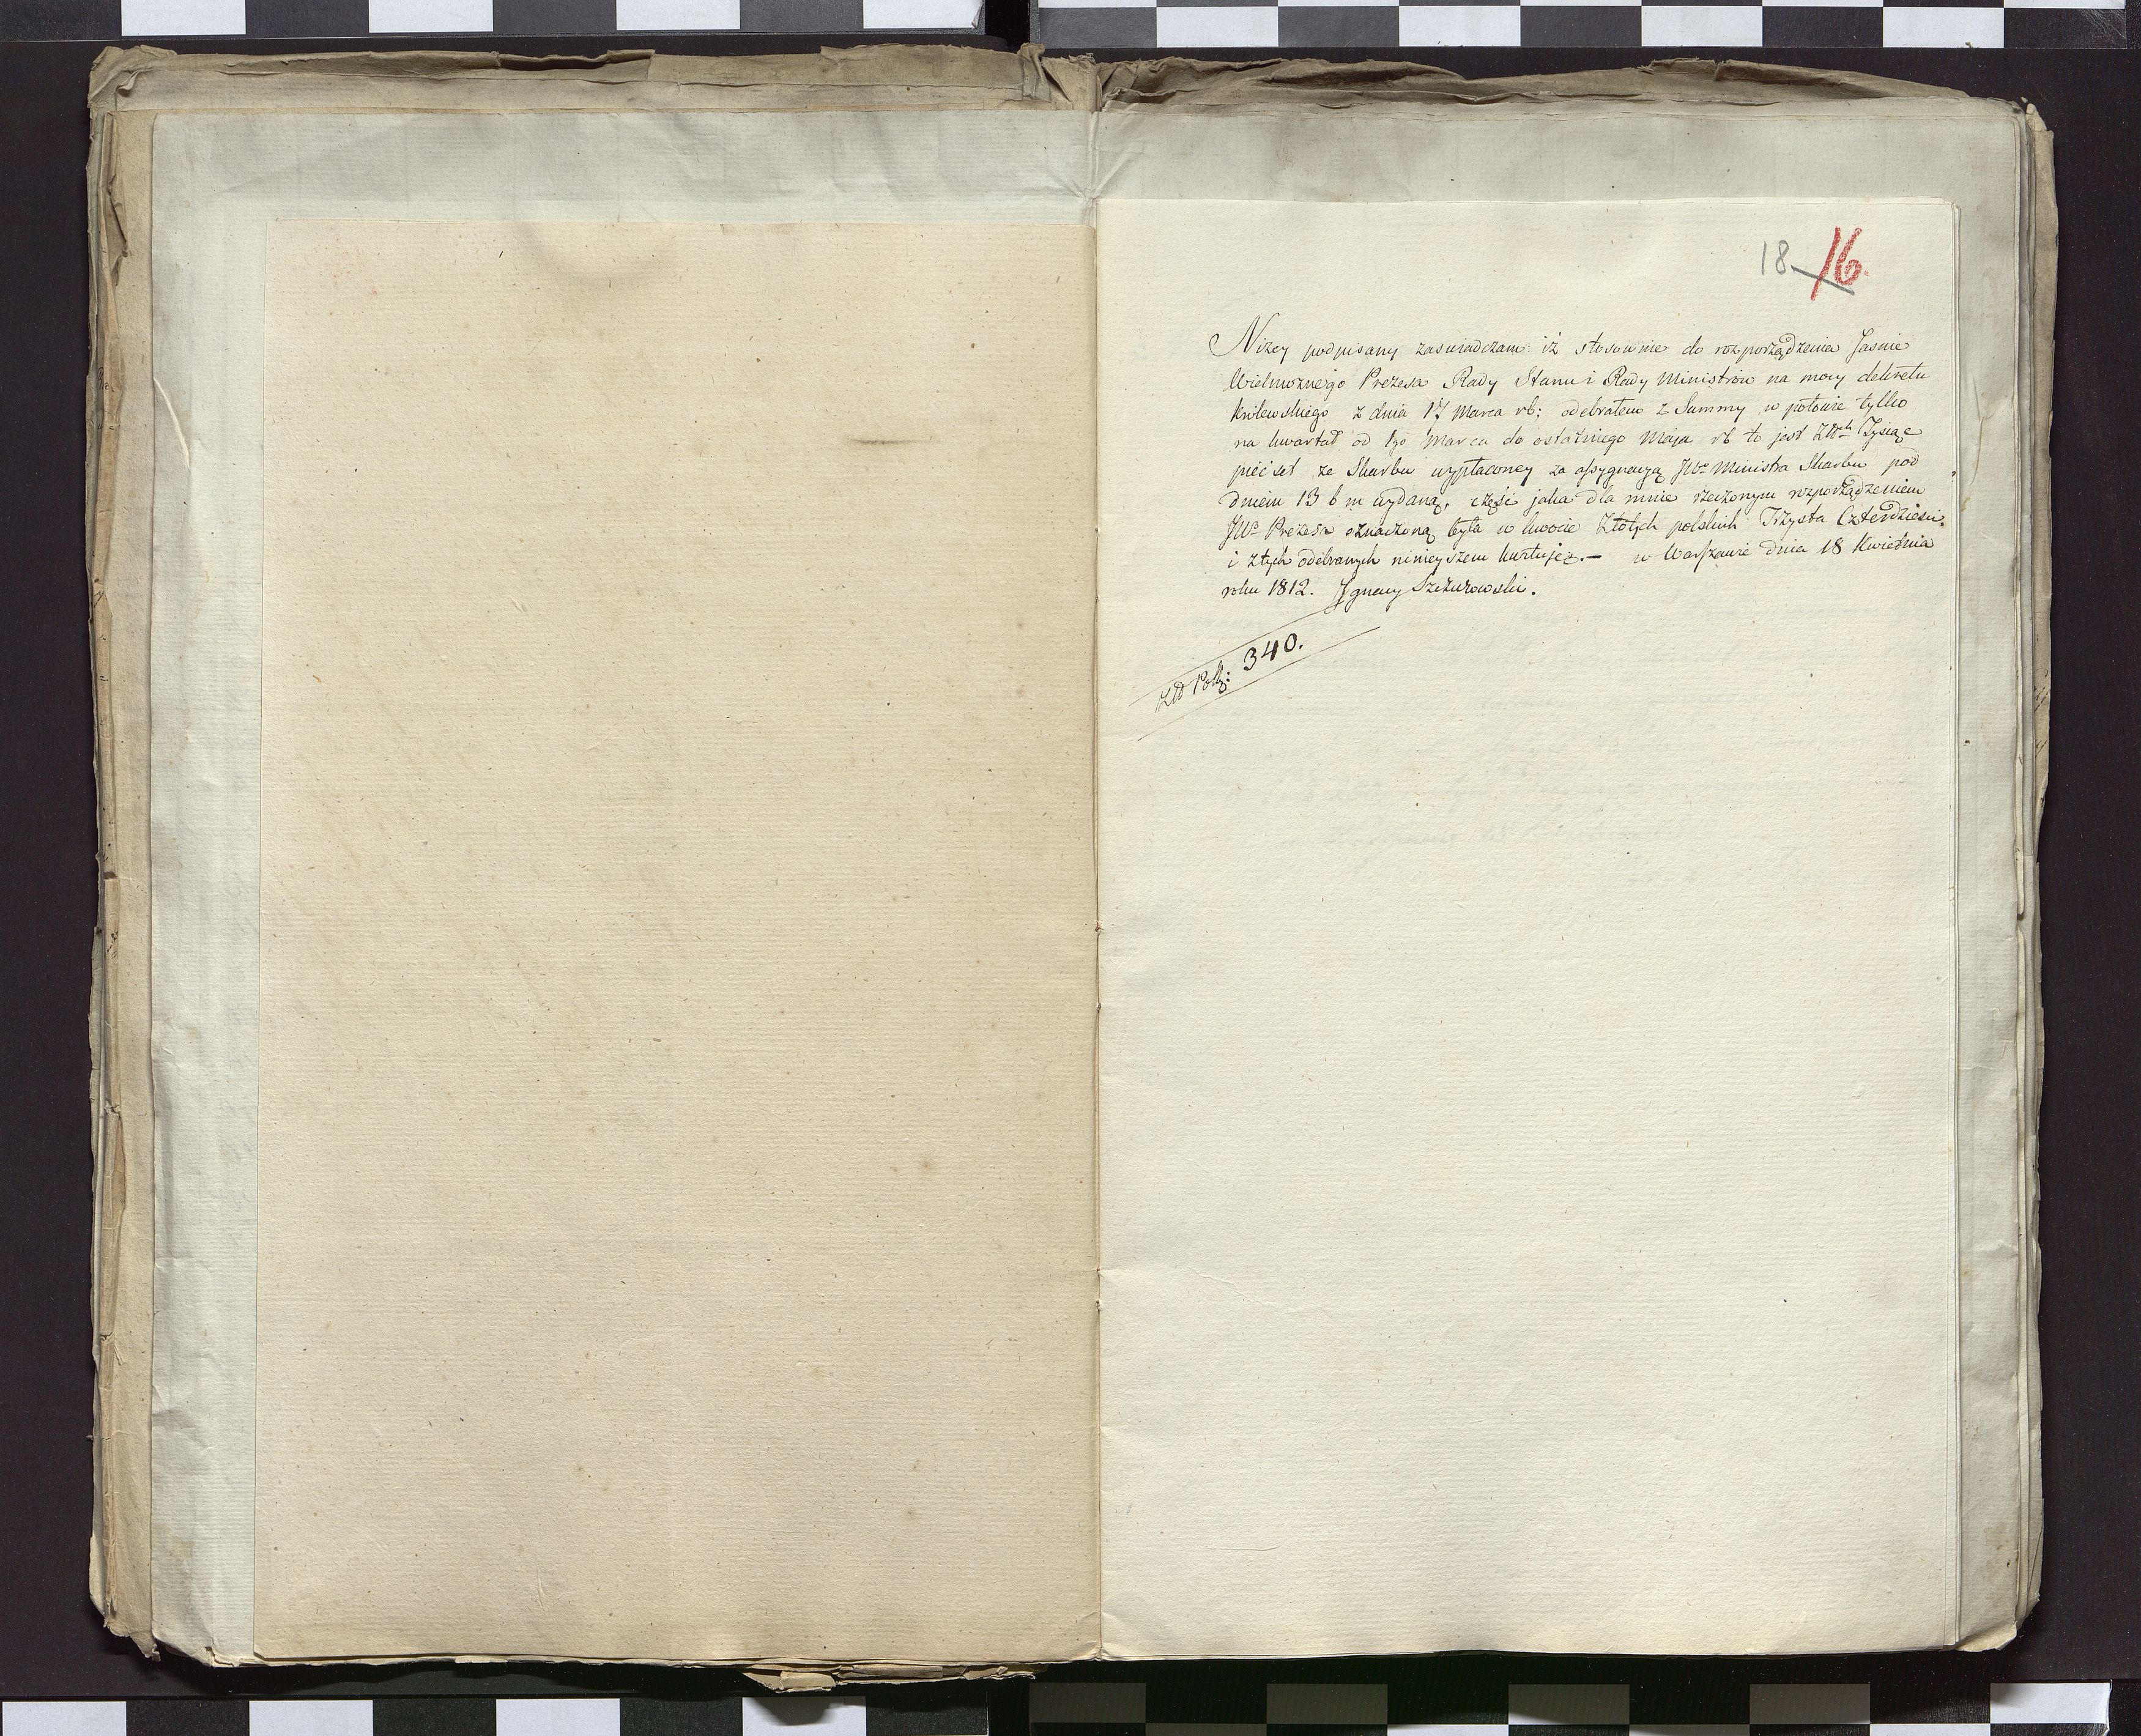 18. 16.
Niżey podpisany zaświadczam iż stosownie do rozporządzenia Jaśnie
Wielmożnego Prezesa Rady Stanu i Rady Ministrów na mocy dekretu
Królewskiego z dnia 17 Marca rb: odebrałem z Summy w połowie tylko
na kwartał od 1go Marca do ostatniego Maja rb to jest Złłch Tysiąc
pięćset ze Skarbu wypłaconey za assygnacyą JWo Ministra Skarbu pod
dniem 13 b m wydaną, część jaka dla mnie rzeczonym rozporządzeniem
JWo Prezesa oznaczoną była w kwocie Złotych polskich Trzysta Czterdzieści
i z tych odebranych ninieyszem kwituję. — w Warszawie dnia 18 Kwietnia
roku 1812. Ignacy Szczurowski.
Złł Pols: 340.